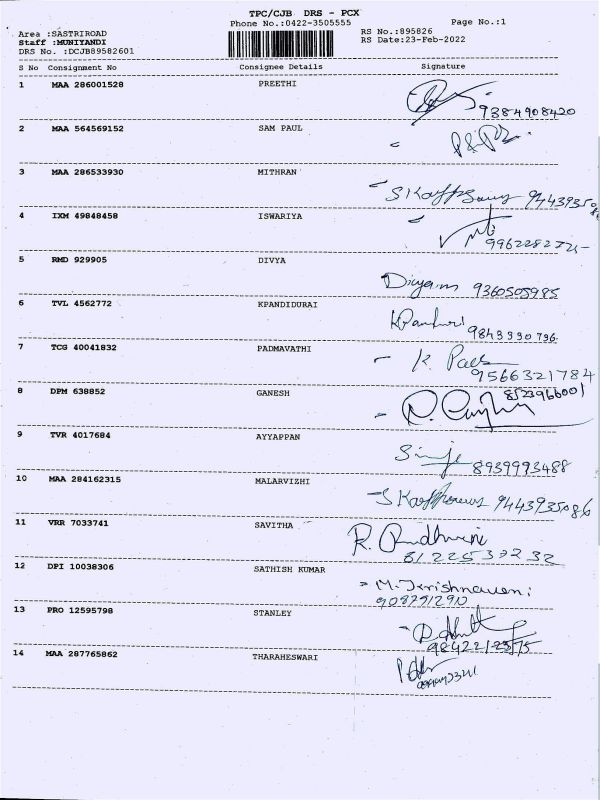 TPC/CJB DRS - PCX
Phone No.:0422-3505555 Page No.:1
Area :SASTRIROAD RS No.:895826
Staff :MUNIYANDI RS Date:23-Feb-2022
DRS No. :DCJB89582601
S No Consignment No Consignee Details Signature
1 MAA 286001528 PREETHI
9384908420
2 MAA 564569152 SAM PAUL
3 MAA 286533930 MITHRAN
4 IXM 49848458 ISWARIYA
5 RMD 929905 DIVYA
Divya 9360505985
6 TVL 4562772 KPANDIDURAI
9843330796
7 TCG 40041832 PADMAVATHI
9566321784
8 DPM 638852 GANESH
8523966001
9 TVR 4017684 AYYAPPAN
8939993488
10 MAA 284162315 MALARVIZHI
9443935086
11 VRR 7033741 SAVITHA
12 DPI 10038306 SATHISH KUMAR
13 PRO 12595798 STANLEY
14 MAA 287765862 THARAHESWARI